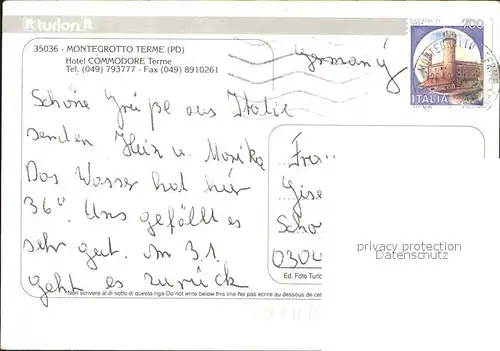 turlon
35036 - MONTEGROTTO TERME (PD)
Hotel COMMODORE Terme
Tel. (049) 793777 - Fax (049) 8910261
Germany
700
ITALIA
Schöne Grüße aus Italie
senden Heiz u. Monika
Das Wasser hat hier
36°. Uns gefällt es
sehr gut. Am 3.1.
geht es zurück
Frau
Gise
Scho
0304
privacy protection
Datenschutz
Ed. Foto Turlo
Non scrivere al di sotto di questa riga-Do not write below this line-Ne pas écrire au dessous de cet